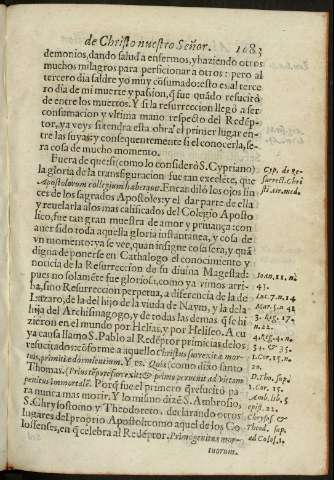 de Christo nuestro Señor. 1083
demonios, dando salud a enfermos, y haziendo otros
muchos milagros para perficionar a otros: pero al
tercero dia saldre yo muy cõsumado: esto es, al terce
ro dia de mi muerte y passion, q̃ fue quãdo resucitò
de entre los muertos. Y si la resurreccion llegò a ser
consumacion y vltima mano respeto del Redẽp-
tor, ya veys si tendra esta obra el primer lugar en-
tre las suyas: y consequentemente si el conocerla, se-
ra cosa de mucho momento.
Fuera de que si (como lo considerò S. Cypriano)
la gloria de la transfiguracion fue tan excelẽte, que
Apostolorum collegium habeatque. Encandilò los ojos sin
ces de los sagrados Apostoles: y el dar parte de ella
y reuelarla a los mas calificados del Colegio Aposto
lico, fue tan gran muestra de amor y priuança: con
auer sido toda aquella gloria instantanea, y cosa de
vn momento: ya se ve, quan insigne cosa sera, y quã
digna de ponerse en Cathalogo el conocimiento y
noticia de la Resurreccion de su diuina Magestad:
pues no solamẽte fue gloriosa, como ya vimos arri-
ba, sino Resurreccion perpetua, a diferencia de la de
Lazaro, de la del hijo de la viuda de Nayn, y de la
hija del Archisinagogo, y de todas las demas q̃ se hi
zieron en el mundo por Helias, y por Heliseo. A cu
ya causa llamo S. Pablo al Redẽptor primicias de los
resucitados: cõforme a aquello Christus surrexit a mor
tuis, primitiæ dormientium. Y es. Quia (como dixo santo
Thomas.) Primò tempore surrexit: & primo peruenit ad vitam
penitus immortalẽ. Porq̃ fue el primero q̃ resucitò pa
ra nunca mas morir. Y lo mismo dizẽ S. Ambrosio,
S. Chrysostomo y Theodoreto, declarando otros
lugares del proprio Apostol: como aquel de los Co
lossenses, en q̃ celebra al Redẽptor. Primogenitus mor-
tuorum.
Cyp. de re-
surrect. Chri
sti
Ioan. 11. n.
43.
Luc. 7. n. 14
Mar. 5. n. 41
3. Reg. 17.
n. 22.
4. Reg. 4. n.
34. & 35.
1. Cor. 15.
n. 20.
D. Tho. sup.
1. Cor. 15.
Amb. lib. 5
epist. 22.
Chrys. &
Theod. sup.
ad Colos. 1.